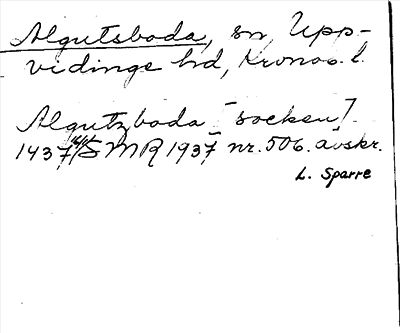 Algutsboda, sn, Upp-
vidinge hd, Kronob. l.
Algutzboda [socken].
1437 SMR 1937 nr. 506. avskr.
L. Sparre